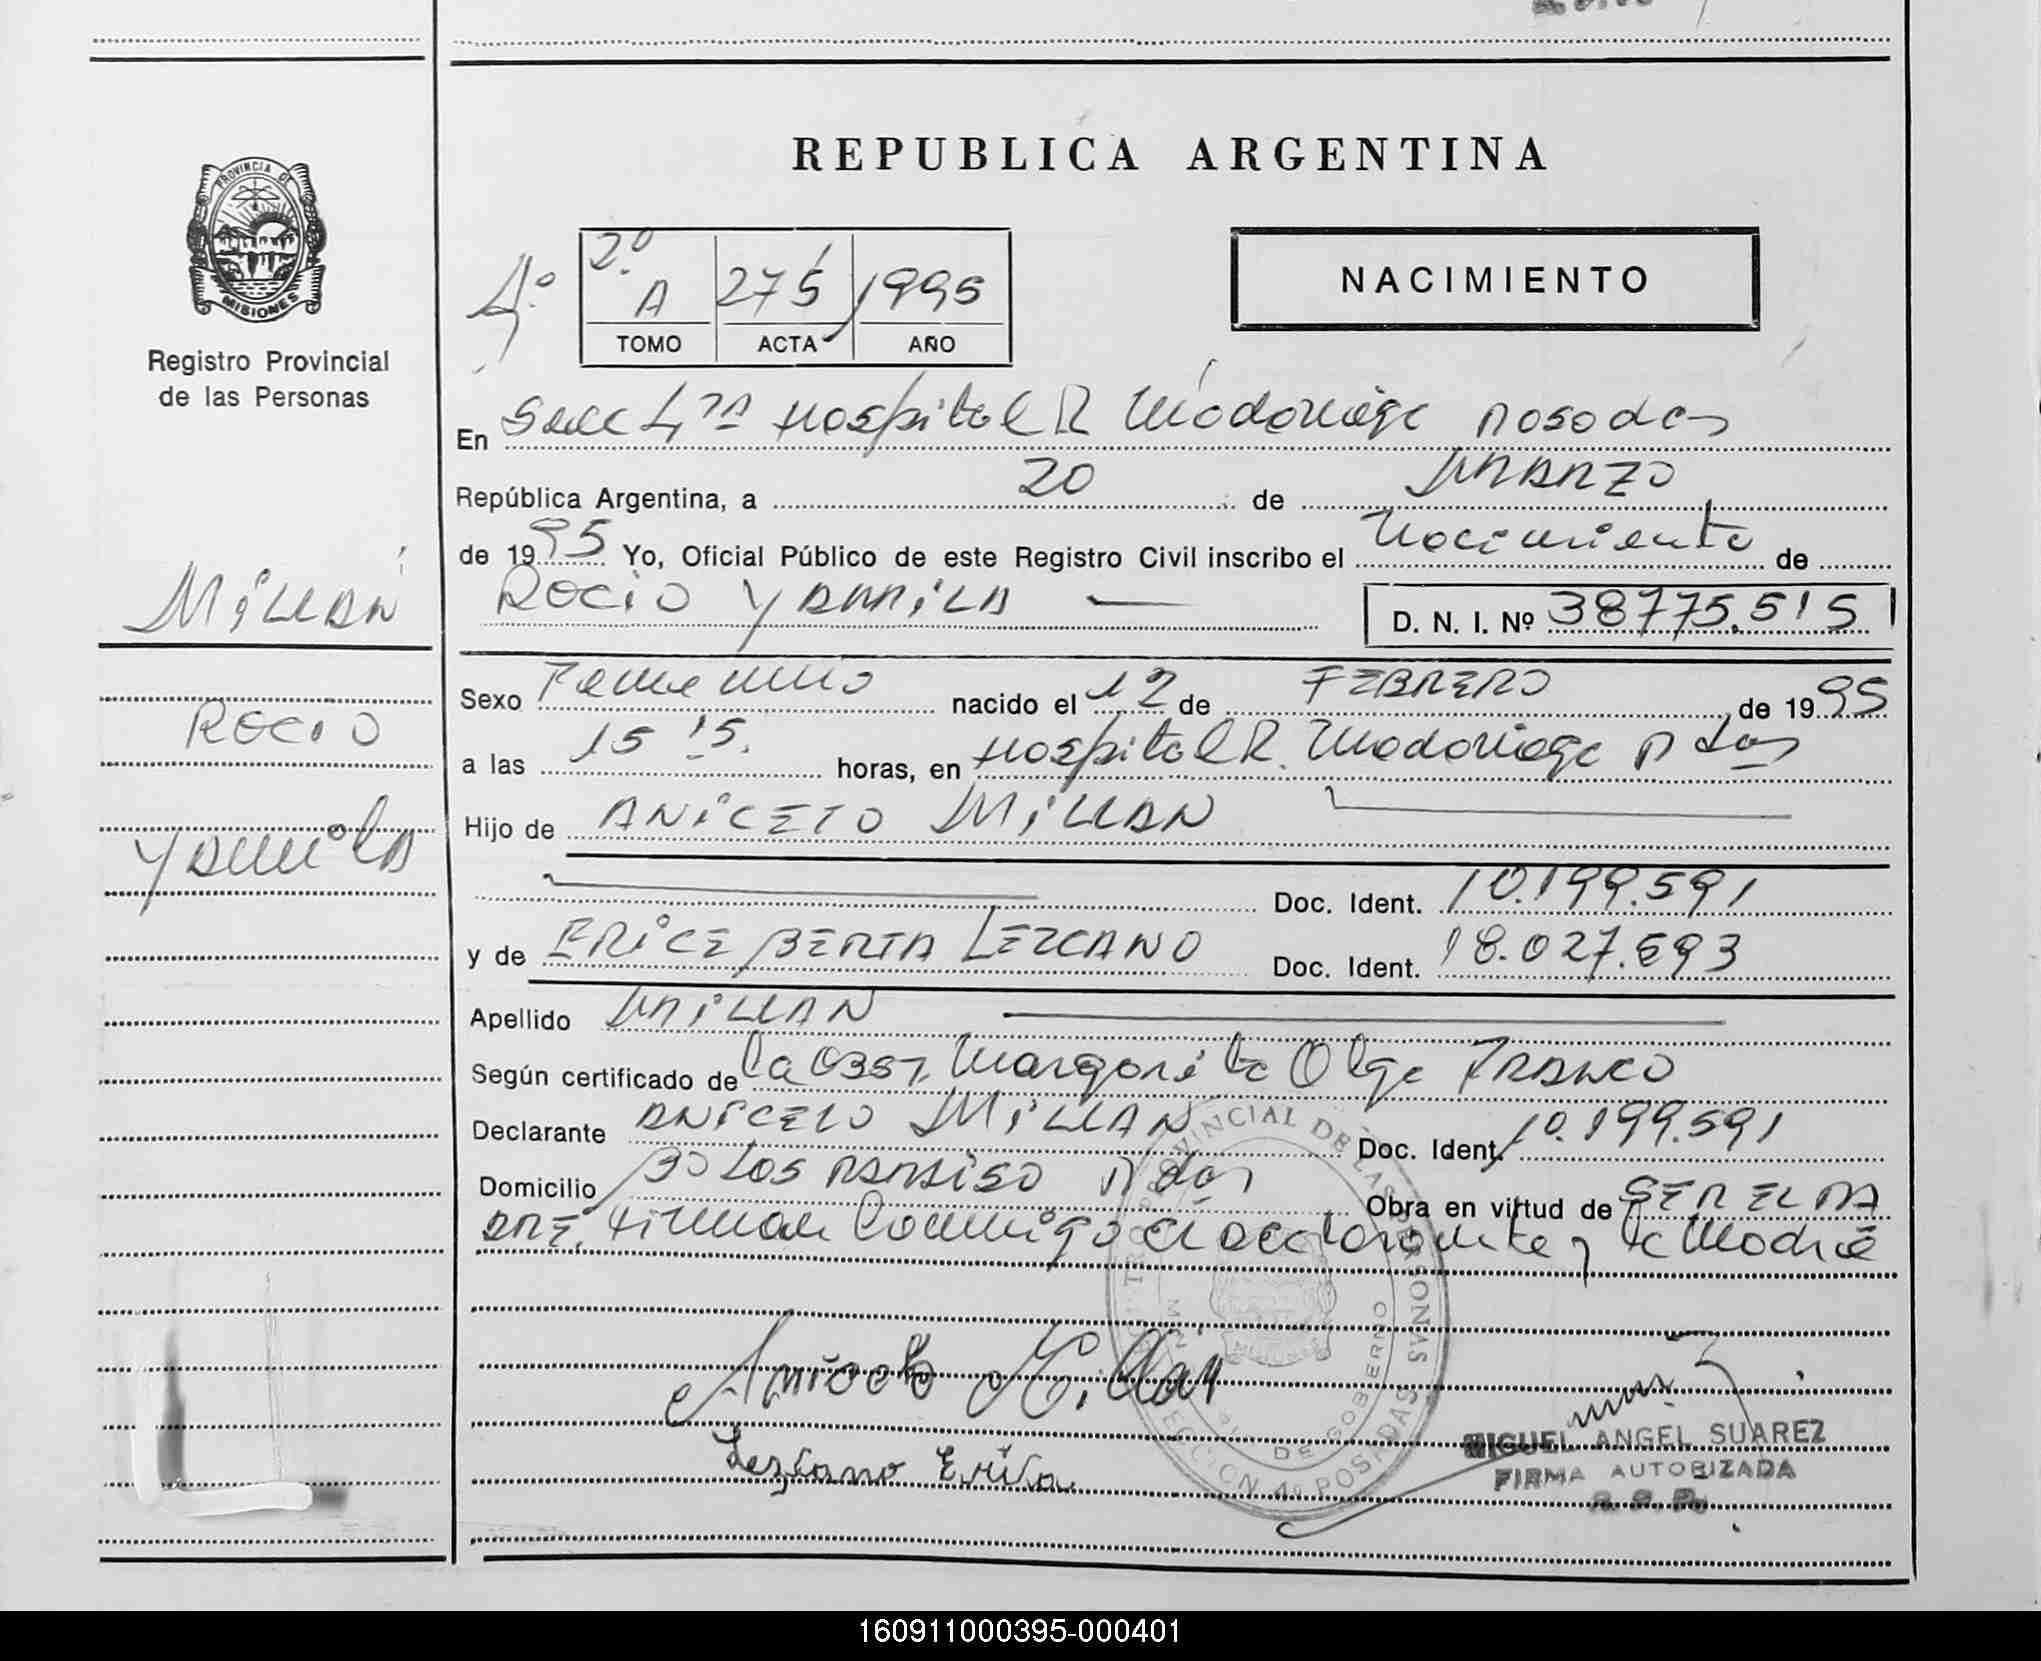 REPUBLICA ARGENTINA
PROVINCIA DE
MISIONES
Registro Provincial
de las Personas
4º 2º A 275 1995
TOMO ACTA AÑO
NACIMIENTO
En Secc 4ta Hospital R Madariaga Posadas
República Argentina, a 20 de MARZO
de 1995 Yo, Oficial Público de este Registro Civil inscribo el Nacimiento de
ROCIO YAMILA D. N. I. Nº 38775.515
MiLLAN
ROCIO
YAMiLA
Sexo Femenino nacido el 12 de FEBRERO de 1995
a las 15 15. horas, en Hospital R. Madariaga Pdas
Hijo de ANICETO MiLLAN
Doc. Ident. 10.199.591
y de ERICE BERTA LEZCANO Doc. Ident. 18.027.693
Apellido MiLLAN
Según certificado de la Obst. Margarita Olga FRANCO
Declarante ANICETO MiLLAN Doc. Ident. 10.199.591
Domicilio Bº LOS PARAISO Pdas Obra en virtud de SER EL PA
DRE. Firman Conmigo el declarante y la Madre
Aniceto Millan
Lezcano Erica
MIGUEL ANGEL SUAREZ
FIRMA AUTORIZADA
R. P. P.
PROVINCIAL DE LAS PERSONAS
DE GOBIERNO
SECCION 4º POSADAS
160911000395-000401